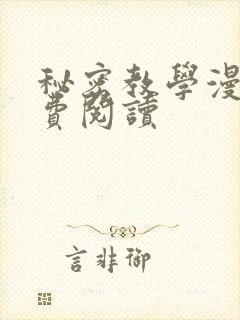 秘密教學漫
費閱讀
言非御